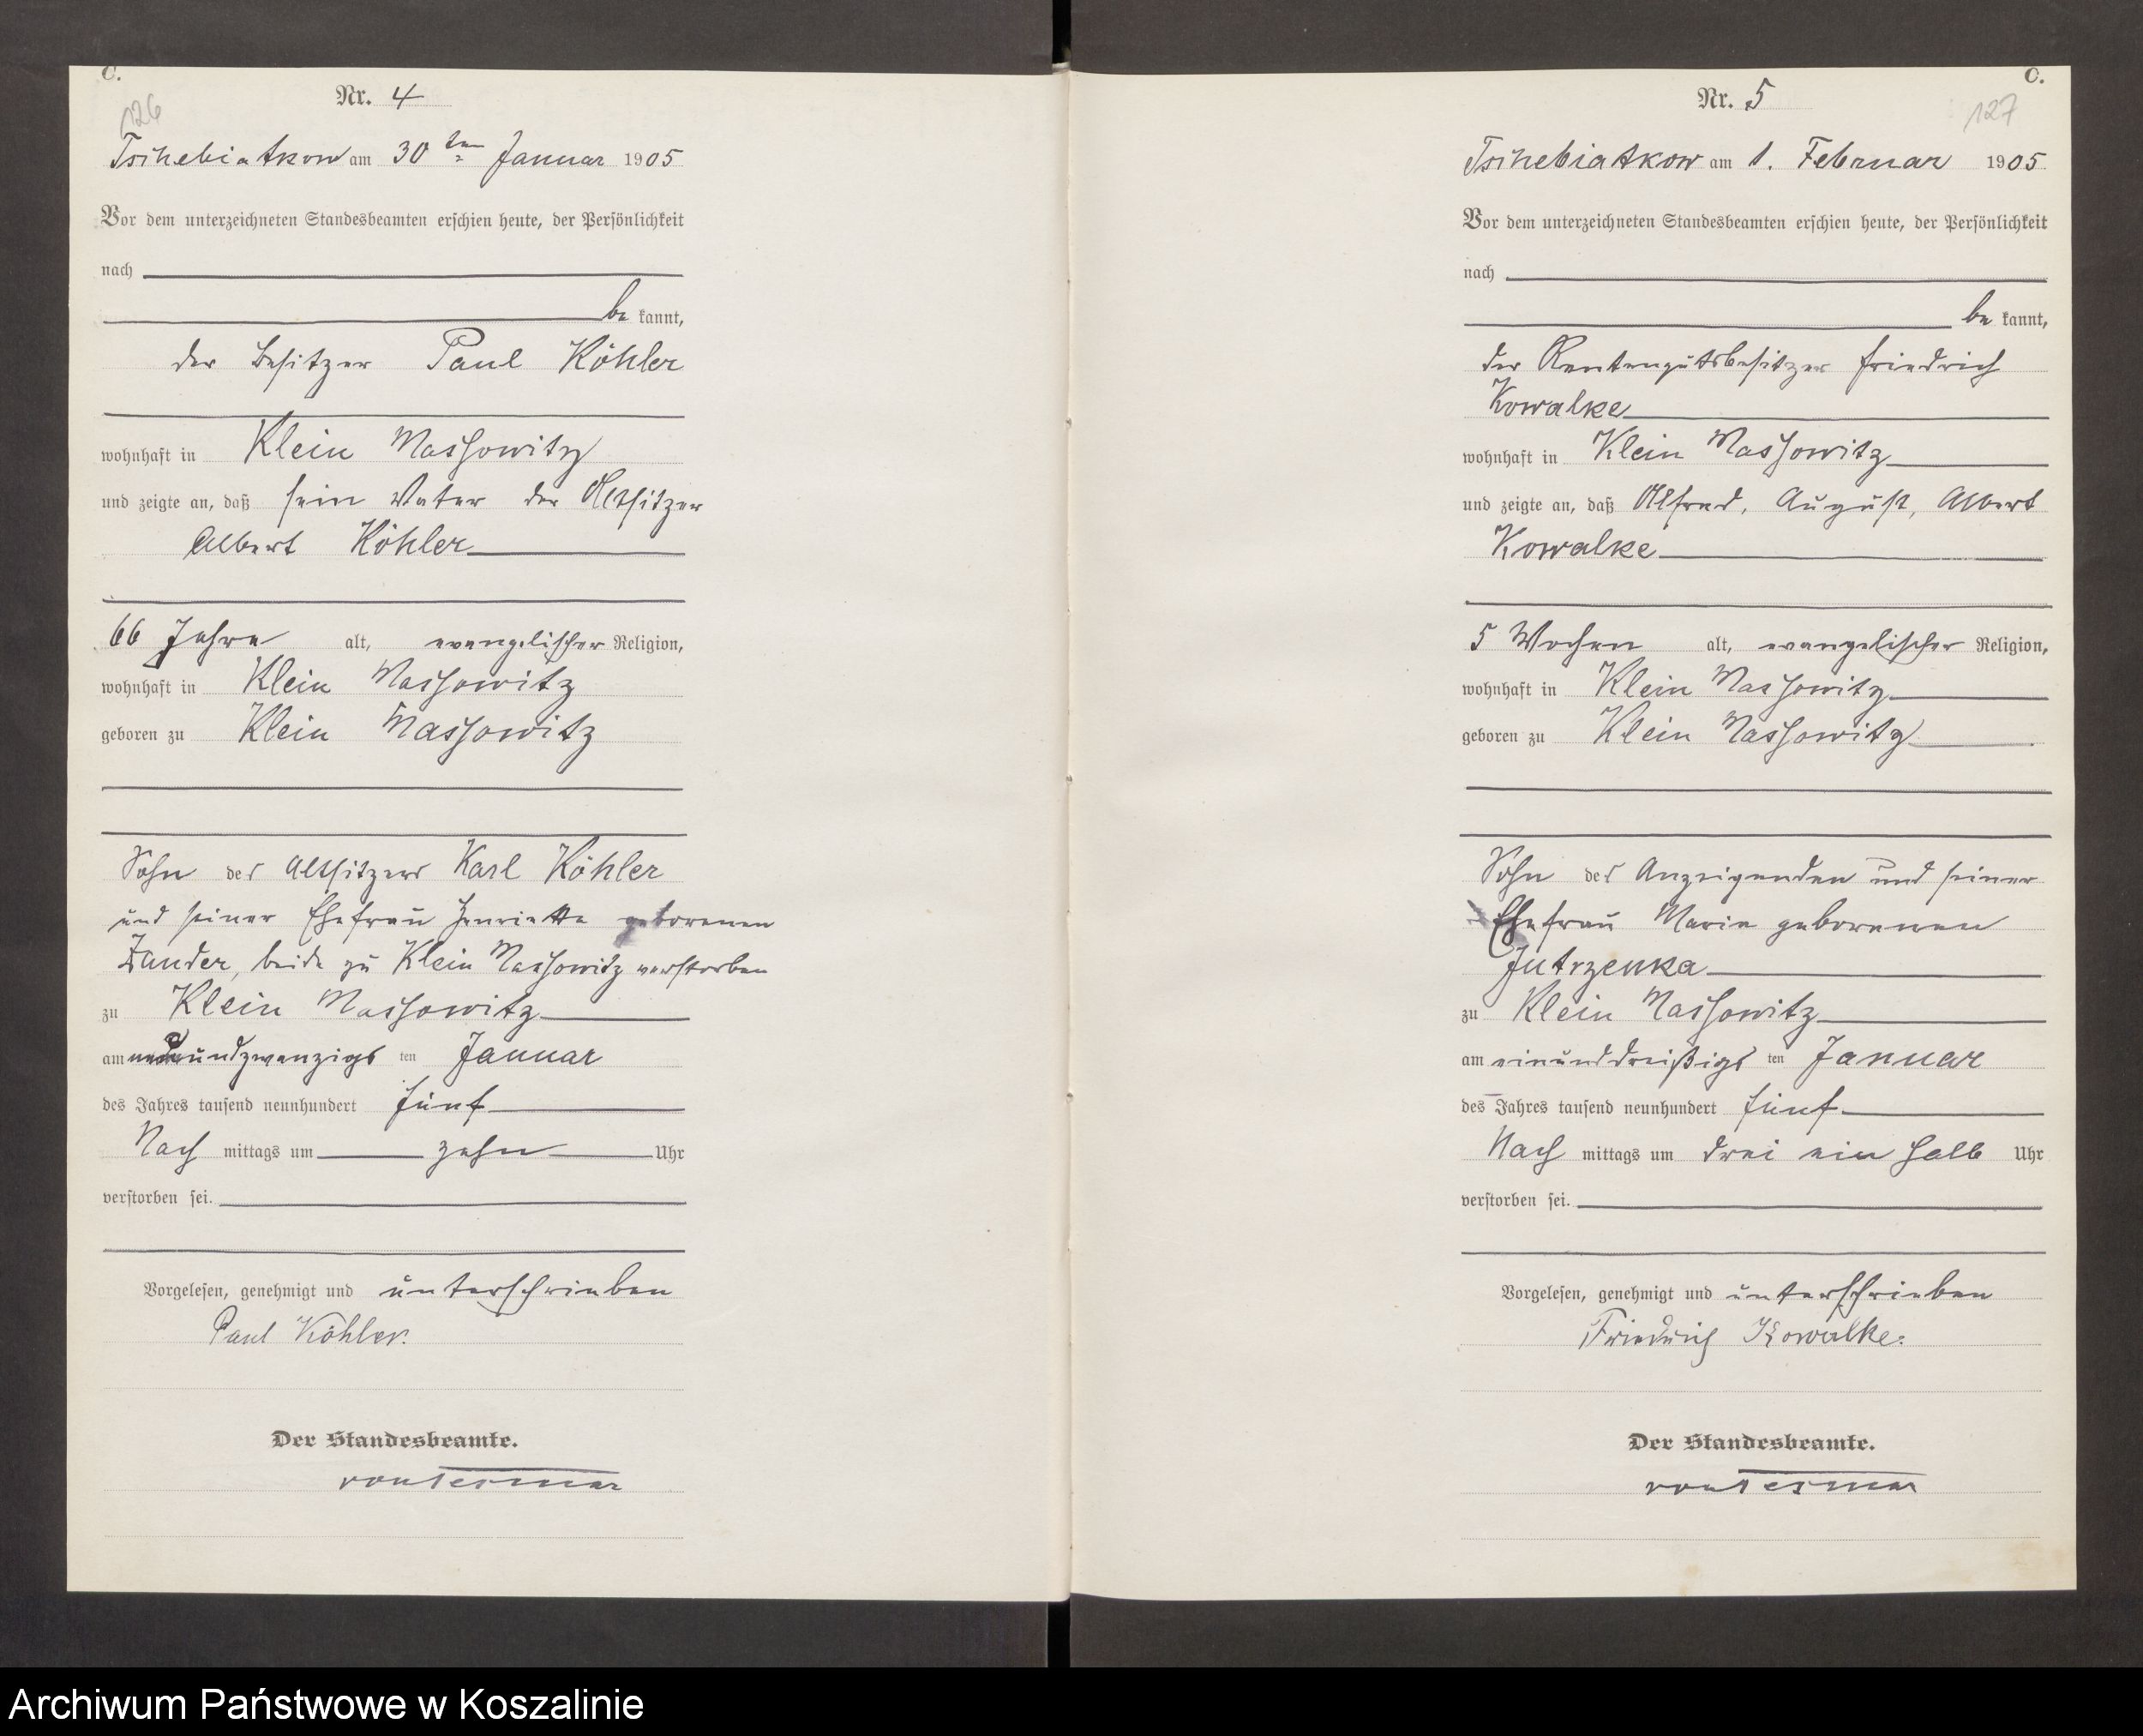 C.
126
Nr. 4
Tschebiatkow am 30ten Januar 1905
Vor dem unterzeichneten Standesbeamten erschien heute, der Persönlichkeit
nach
be kannt,
der Besitzer Paul Köhler
wohnhaft in Klein Massowitz
und zeigte an, daß sein Vater der Altsitzer
Albert Köhler
66 Jahre alt, evangelischer Religion,
wohnhaft in Klein Massowitz
geboren zu Klein Massowitz
Sohn des Altsitzers Karl Köhler
und seiner Ehefrau Henriette geborenen
Zander, beide zu Klein Massowitz verstorben
zu Klein Massowitz
am undzwanzigs ten Januar
des Jahres tausend neunhundert fünf
Nach mittags um zehn Uhr
verstorben sei.
Vorgelesen, genehmigt und unterschrieben
Paul Köhler.
Der Standesbeamte.
von Tesmar
C.
127
Nr. 5
Tschebiatkow am 1. Februar 1905
Vor dem unterzeichneten Standesbeamten erschien heute, der Persönlichkeit
nach
be kannt,
der Rentengutsbesitzer Friedrich
Kowalke
wohnhaft in Klein Massowitz
und zeigte an, daß Alfred, August, Albert
Kowalke
5 Wochen alt, evangelischer Religion,
wohnhaft in Klein Massowitz
geboren zu Klein Massowitz
Sohn des Anzeigenden und seiner
Ehefrau Marie geborenen
Jutrzenka
zu Klein Massowitz
am einunddreißigs ten Januar
des Jahres tausend neunhundert fünf
Nach mittags um drei ein halb Uhr
verstorben sei.
Vorgelesen, genehmigt und unterschrieben
Friedrich Kowalke.
Der Standesbeamte.
von Tesmar
Archiwum Państwowe w Koszalinie